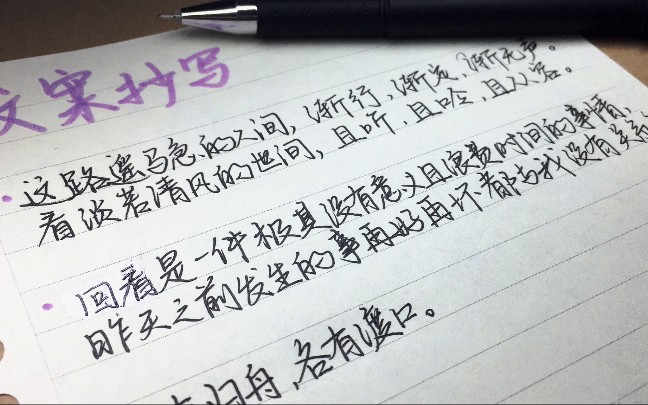 文案抄写
这路遥马急的人间,渐行,渐远,渐无声。
看淡若清风的世间,且听,且吟,且从容。
回看是一件极其没有意义且浪费时间的事情,
昨天之前发生的事再好再坏都与我没有关
归舟,各有渡口。